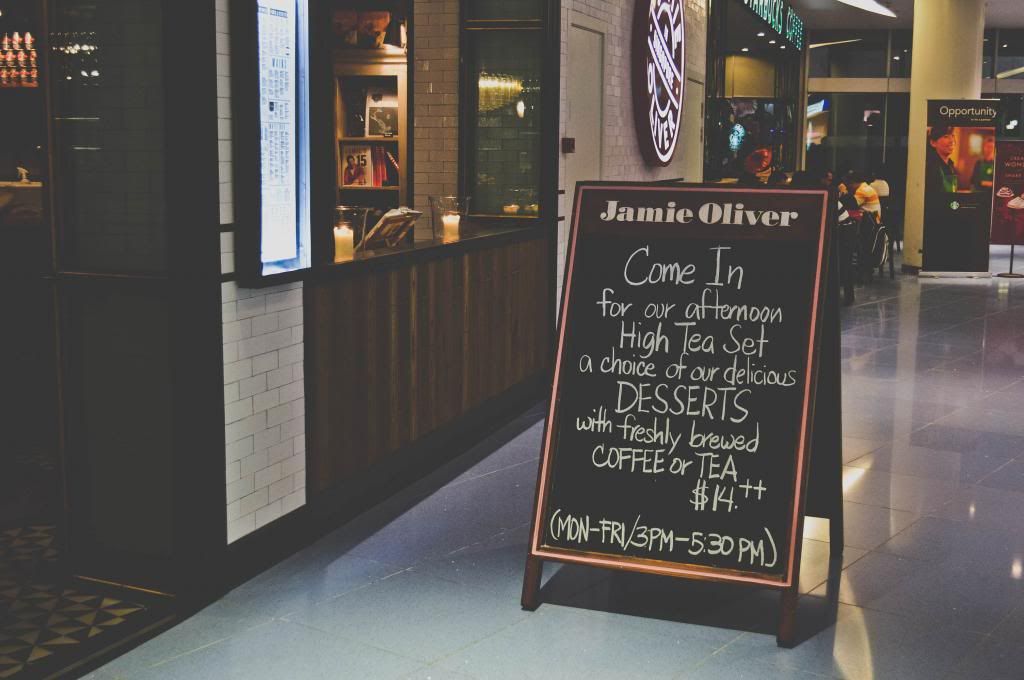 STARBUCKS COFFEE
JAMIE OLIVER
15
Opportunity
Jamie Oliver
Come In
for our afternoon
High Tea Set
a choice of our delicious
DESSERTS
with freshly brewed
COFFEE or TEA
$14.++
(MON-FRI/3PM-5:30 PM)